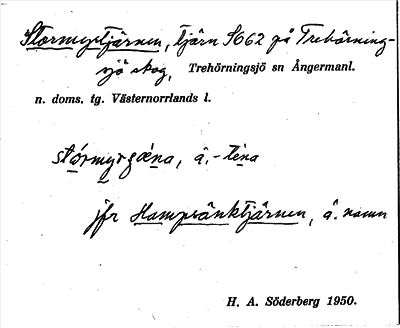 Stormyrtjärnen, tjärn SO62 på Trehörning-
sjö skog, Trehörningsjö sn Ångermanl.
n. doms. tg. Västernorrlands l.
jfr Hampränktjärnen, å. namn
H. A. Söderberg 1950.